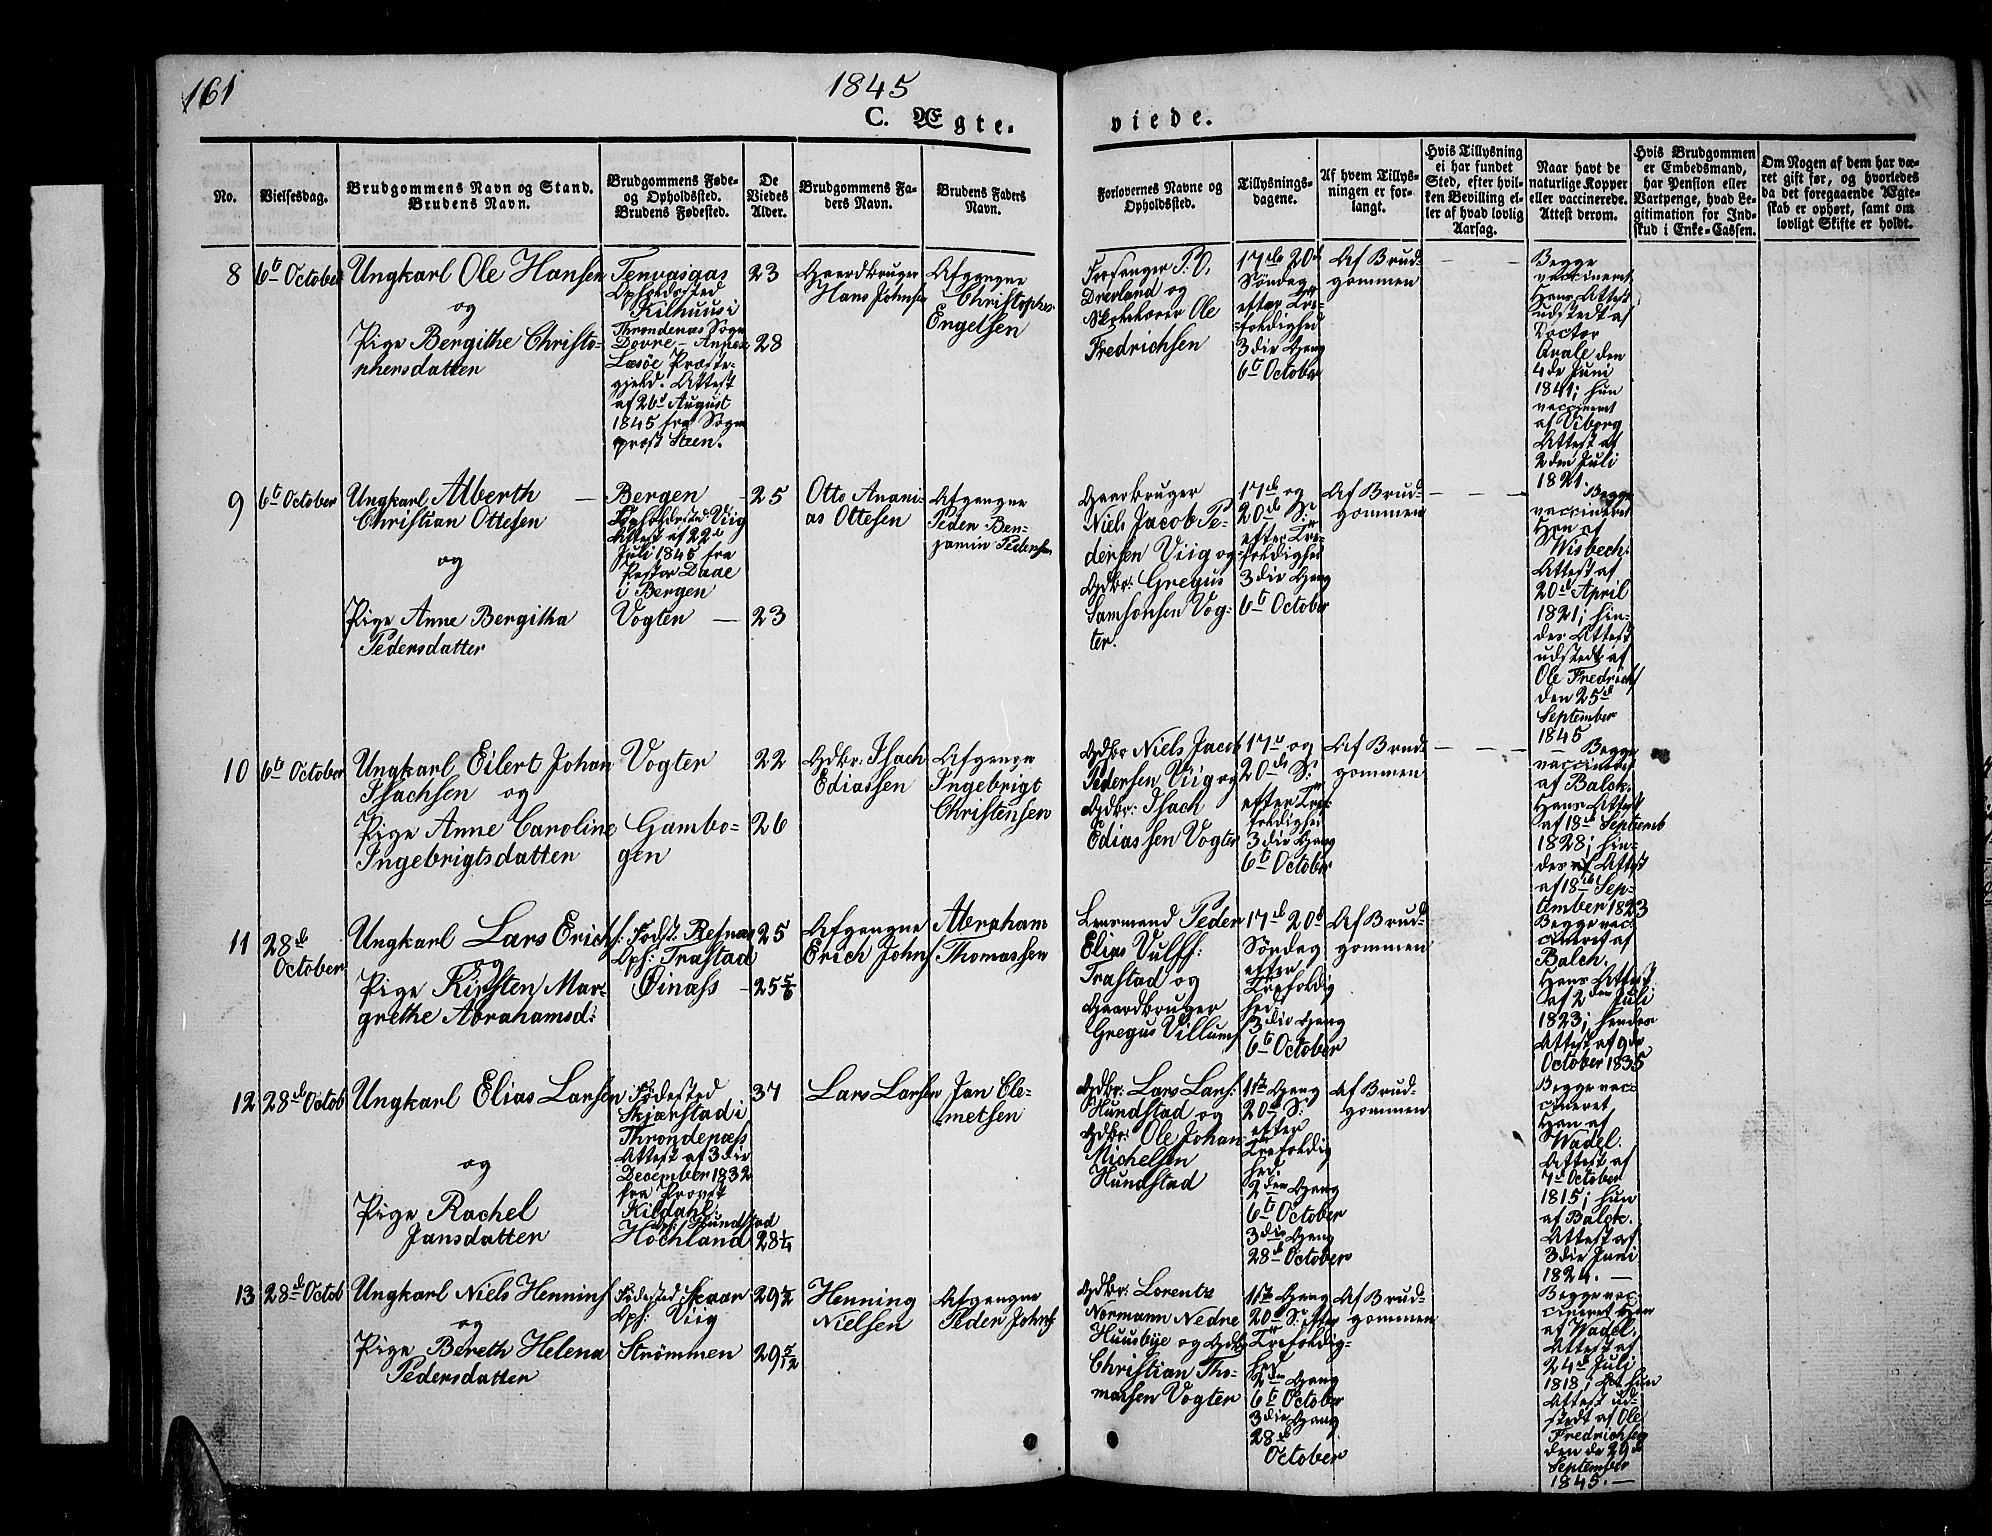 161
1845
C. Ægte-
viede.
No.
Vielsesdag.
Brudgommens Navn og Stand.
Brudens Navn.
Brudgommens Føde-
og Opholdssted.
Brudens Fødested.
De
Viedes
Alder.
Brudgommens Fa-
ders Navn.
Brudens Faders
Navn.
Forlovernes Navne og
Opholdssted.
Tillysnings-
dagene.
Af hvem Tillys-
ningen er for-
langt.
Hvis Tillysning
ei har fundet
Sted, efter hvil-
ken Bevilling el-
ler af hvad lovlig
Aarsag.
Naar havt de
naturlige Kopper
eller vaccinerede.
Attest derom.
Hvis Brudgommen
er Embedsmand,
har Pension eller
Vartpenge, hvad Le-
gitimation for Ind-
skud i Enke-Cassen.
Om Nogen af dem har væ-
ret gift før, og hvorledes
da det foregaaende Ægte-
skab er ophørt, samt om
lovligt Skifte er holdt.
8
6te October
Ungkarl Ole Hansen
og
Pige Bergithe Christo-
phersdatter
Tenvasgas
Opholdssted
Kilhuus i
Throndenæs Sogn
Dovre- Annex
Læsøe Præste-
gjeld. Attest
af 26d August
1845 fra Sogn
præst Steen.
23
28
Gaardbruger
Hans Johnsen
Afgangne
Christopher
Engelsen
Forsanger P. O.
Dreyland og
Skolelærer Ole
Fredrichsen
17de 20d
Søndag
efter Tre-
foldighed
3die Gang
6te October
Af Brud-
gommen
Begge
vaccineret
Hans Attest
udstedt af
Doctor
Qvale den
4de Juni
1841; hun
vaccineret
af Viborg
Attest af
2den Juli
1821.
9
6te October
Ungkarl Alberth
Christian Ottesen
og
Pige Anne Bergitha
Pedersdatter
Bergen
Opholdssted Viig
Attest af 22d
Juli 1845 fra
Pastor Daae
i Bergen
Vogten
25
23
Otto Anani-
as Ottesen
Afgangne
Peder Ben-
jamin Pedersen
Gaardbruger
Niels Jacob Pe-
dersen Viig og
Gdbr: Gregus
Samsonsen Vog-
ter.
17de og
20de S:
efter Tre-
foldighed
3die Gang
6te October
Af Brud-
gommen
Begge
vaccineret
Han af
Wisbech.
Attest af
20d April
1821; hin-
des Attest
udstedt af
Ole Fredrichs
den 25d
September
1845
10
6te October
Ungkarl Eilert Johan
Isachsen og
Pige Anne Caroline
Ingebrigtsdatter
Vogter
Gambo-
gen
22
26
Gdbr: Isach
Ediassen
Afgangne
Ingebrigt
Christensen
Gdbr Niels Jacob
Pedersen Viig og
Gdbr: Isach
Ediassen Vogter
17de og
20de S:
efter Tre-
foldighed
3die Gang
6te October
Af Brud-
gommen
Begge
vaccineret
af Balck.
Hans Attest
af 18d Septemb
1828; hin-
des af Attest
af 18de Sep-
tember 1823
11
28de
October
Ungkarl Lars Erichs:
og
Pige Kirsten Mar-
grethe Abrahamsd:
Fødst: Refnæs
Oph: Trastad
Øinæss
25
25 5/6
Afgangne
Erich Johns
Abraham
Thomassen
Lensmand Peder
Elias Vulff:
Trastad og
Gaardbruger
Gregus Villums
17de 20d
Søndag
efter
Trefoldig
hed
3die Gang
6te October
Af Brud-
gommen
Begge vac-
cineret af
Balch.
Hans Attest
af 2den Juli
1823; hendes
Attest af 9de
October 1835
12
28de Octob
Ungkarl Elias Larsen
og
Pige Rachel
Jansdatter
Fødested
Skjærstad i
Throndenæss
Attest af 3die
December 1832
fra Provst
Kildahl.
Oph: Hundstad
Hochland
37
28 1/4
Lars Larsen
Jan Cle-
metsen
Gdbr: Lars Lars:
Hundstad og
Gdbr: Ole Johan
Michelsen
Hundstad
1ste Gang
20de S:
efter
Trefoldig
hed
2den Gang
6te October
3die Gang
28de October
Af Brud-
gommen
Begge vac-
cineret
Han af
Wadel.
Attest af
7de October
1815; hun
af Balck.
Attest af
3die Juni
1824.
13
28de Octob
Ungkarl Niels Hennins
og
Pige Bereth Helena
Pedersdatter
Fødested Skaar
Oph: Viig
Strømmen
29 1/2
29 5/12
Henning
Nielsen
Afgangne
Peder Johns
Gdbr: Lorents
Normann Nedre
Huusbye og Gdbr
Christian Tho-
masen Vogter
1ste Gang
20de S: efter
Trefoldig-
hed
2den Gang
6te October
3die Gang
28de
October
Af Brud-
gommen
Begge vac-
cineret Han
af Wadel.
Attest af
24de Juli
1818; hun
Attest ud-
stedt af Ole
Fredrichsen
den 29de
September
1845.